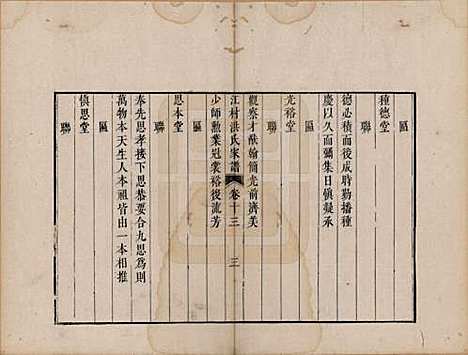 區
種德堂
聯
德必積而後成時勤播種
慶以久而彌集日慎凝承
區
光裕堂
聯
觀察才猷翰簡光前濟美
少師勲業冠裳裕後流芳
江村洪氏家譜 卷十三 三
區
思本堂
聯
奉先思孝接下思恭要合九思為則
萬物本天生人本祖皆由一本相推
區
慎思堂
聯